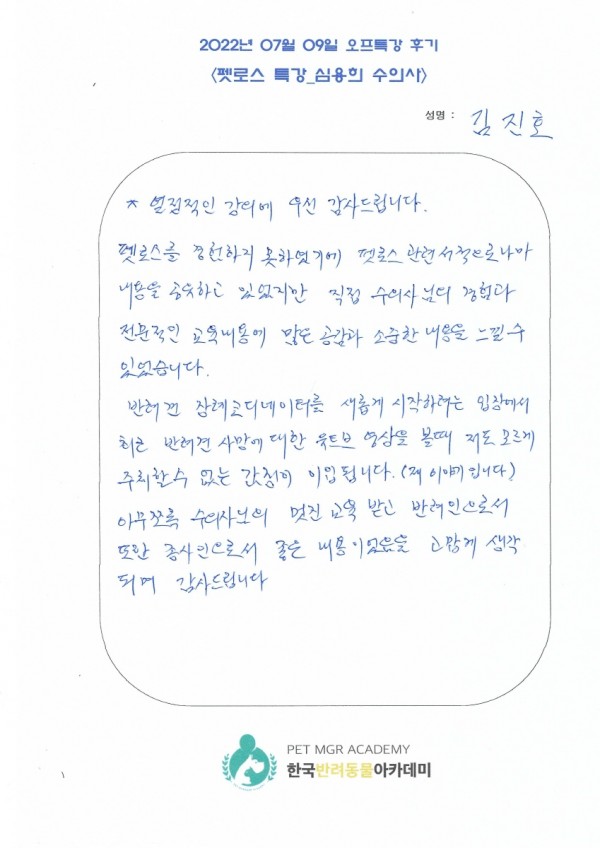 2022년 07월 09일 오프특강 후기
<펫로스 특강_심용희 수의사>
성명 : 김진호
* 열정적인 강의에 우선 감사드립니다.
펫로스를 경험하지 못하였기에 펫로스 관련서적으로나마
내용을 공유하고 있었지만 직접 수의사님의 경험과
전문적인 교육내용에 많은 공감과 소중한 내용을 느낄 수
있었습니다.
반려견 장례코디네이터를 새롭게 시작하려는 입장에서
최근 반려견 사망에 대한 유트브 영상을 볼때 저도 모르게
주체할수 없는 감정이 이입됩니다. (제 이야기 입니다)
아무쪼록 수의사님의 멋진 교육 받고 반려인으로서
또한 종사인으로서 좋은 내용이었음을 고맙게 생각
되며 감사드립니다
PET MGR ACADEMY
한국반려동물아카데미